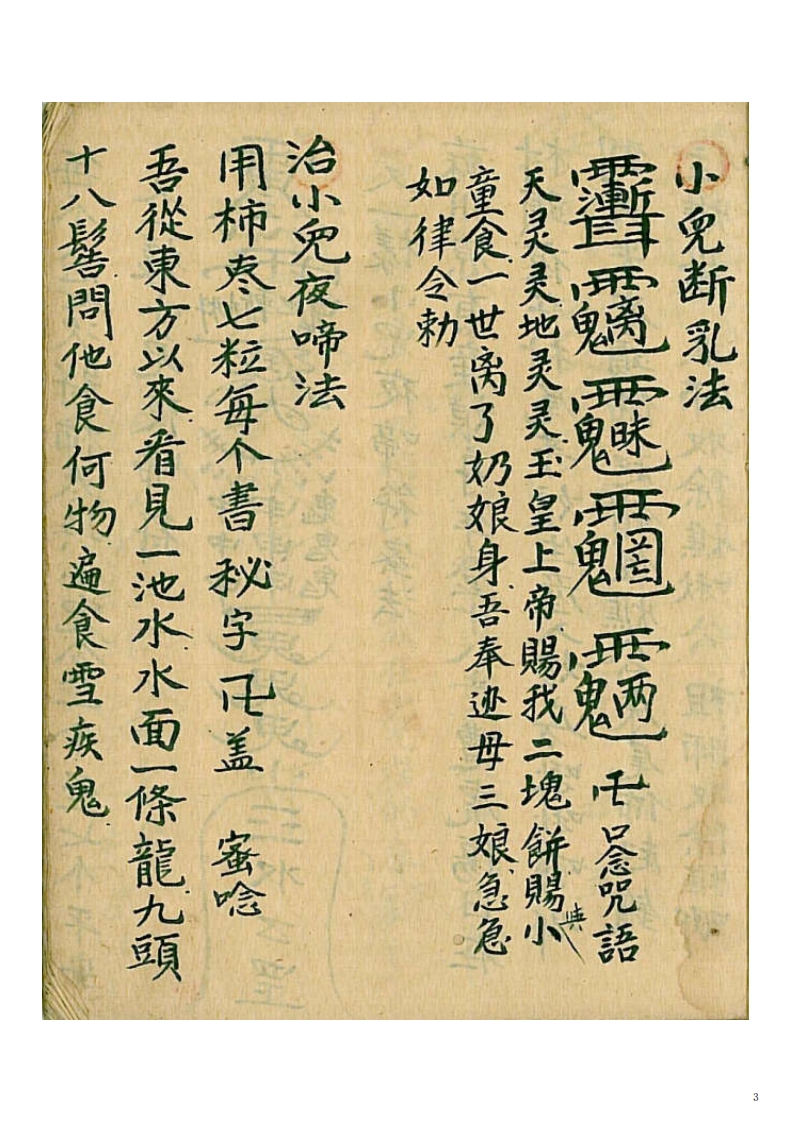 小兒断乳法
口念咒語
天灵灵地灵灵玉皇上帝賜我二塊餅賜與小
童食一世离了奶娘身吾奉 母三娘急急
如律令勅
治小兒夜啼法
用柿枣七粒每个書 秘字 卍 盖 蜜唸
吾從東方以來看見一池水水面一條龍九頭
十八髻問他食何物遍食雪疾鬼
3